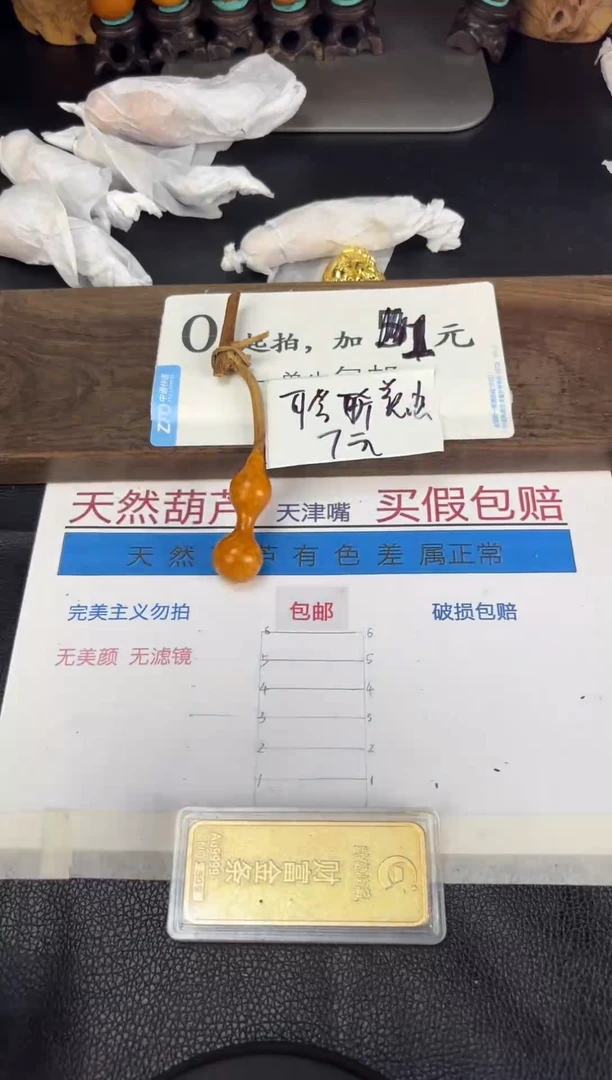 0 起拍，加 1 元
中通快递
ZTO
7元
天然葫芦 天津嘴 买假包赔
天 然 芦 有 色 差 属正常
完美主义勿拍 包邮 破损包赔
无美颜 无滤镜
6 6
5 5
4 4
3 3
2 2
1 1
财富金条
Au9999